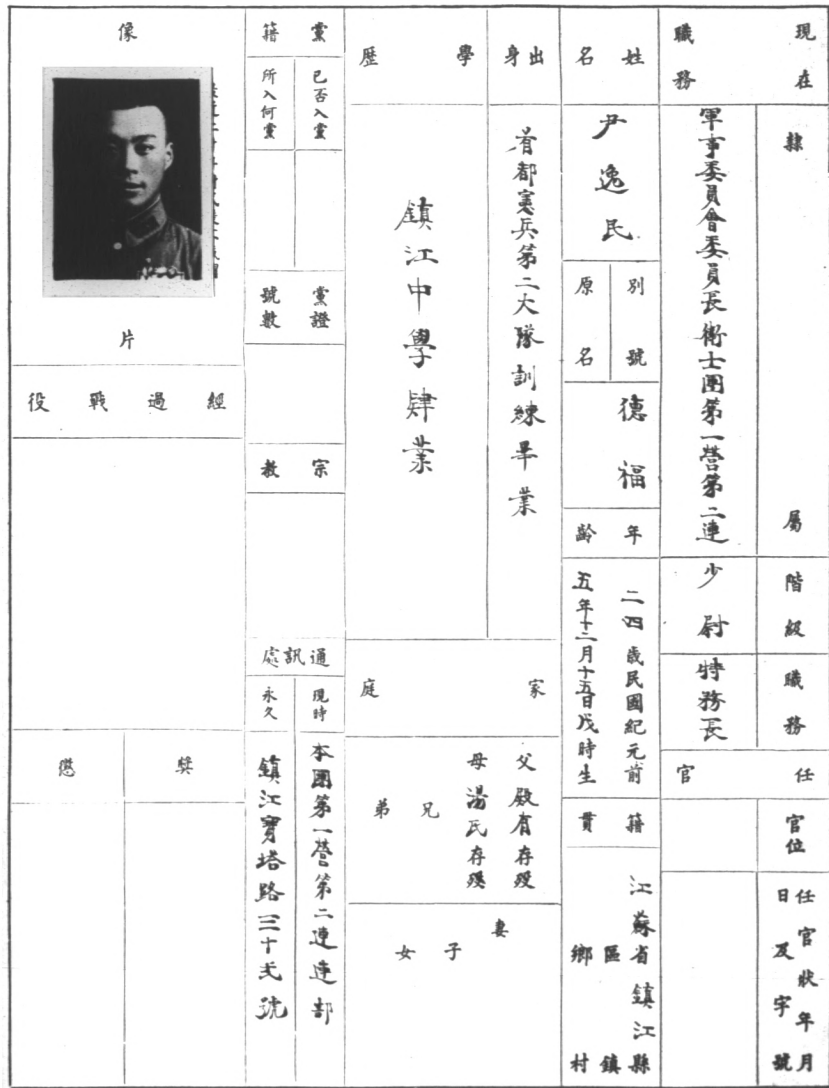 現在職務
隸屬
軍事委員會委員長衛士團第一營第二連
階級
少尉
職務
特務長
任官
官位
任官狀年月日及字號
姓名
尹逸民
別號
原名
德福
年齡
二四歲民國紀元前
五年十二月十五日戌時生
籍貫
江蘇省鎮江縣
區鎮
鄉村
出身
首都憲兵第二大隊訓練畢業
學歷
鎮江中學肄業
家庭
父殿有存歿
母湯氏存歿
兄弟
妻
子女
黨籍
已否入黨
所入何黨
黨證號數
宗教
通訊處
現時
本團第一營第二連連部
永久
鎮江寶塔路三十弍號
像片
經過戰役
獎
懲